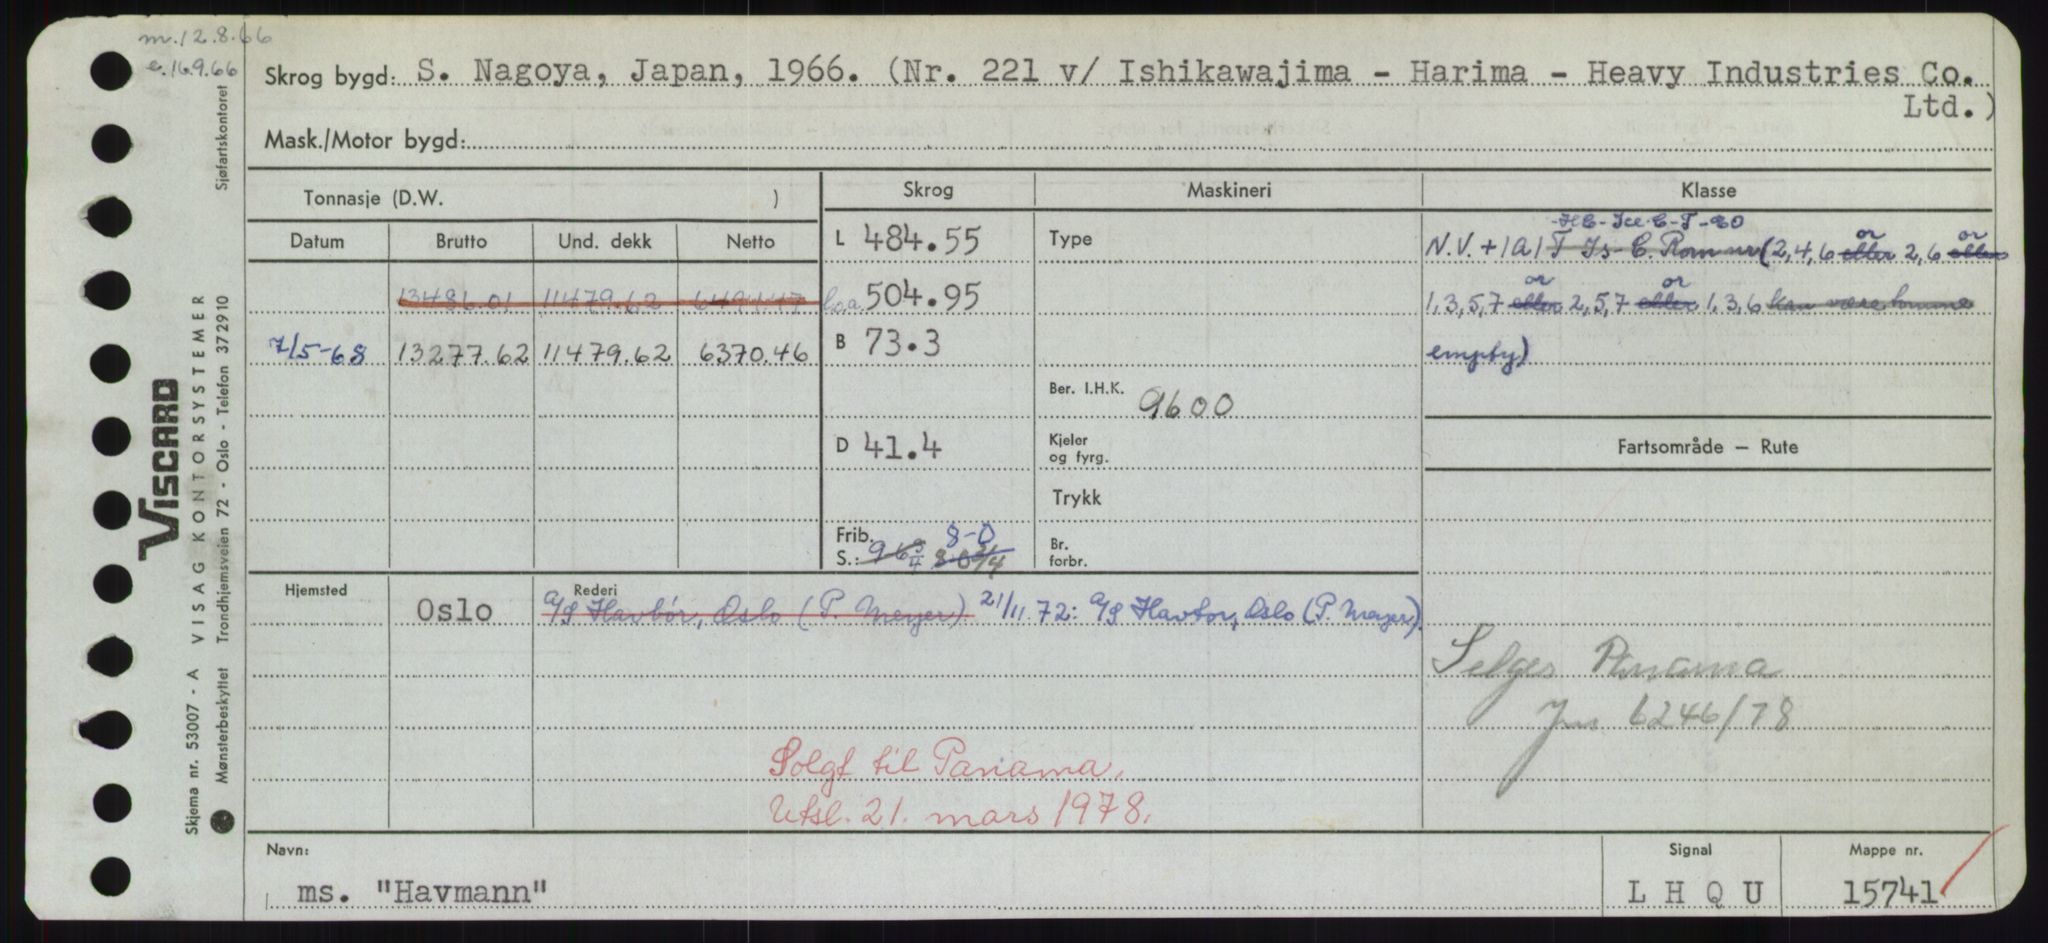 m. 12.8.66
e. 16.9.66
Skrog bygd: S. Nagoya, Japan, 1966. (Nr. 221 v/ Ishikawajima - Harima - Heavy Industries Co.
Ltd.)
Mask./Motor bygd:
Tonnasje (D.W. )
Skrog
Maskineri
Klasse
Datum
Brutto
Und. dekk
Netto
L 484.55
Type
-HC-Ice C-T-EO
N.V. + 1A1 T Is-C. Rom nr (2,4,6 eller or 2,6 eller or
13486.01 11479.62
l.o.a. 504.95
1,3,5,7 eller or 2,5,7 eller or 1,3,6 kan være tomme
7/5-68 13277.62 11479.62 6370.46
B 73.3
empty)
Ber. I.H.K. 9600
D 41.4
Kjeler
og fyrg.
Fartsområde – Rute
Trykk
Frib.
8-0
S.:
Br.
forbr.
Hjemsted
Oslo
Rederi
A/S Havbør, Oslo (P. Meyer). 21/11.72: A/S Havtor, Oslo (P. Meyer).
Selges Panama
Jnr 6246/78
Solgt til Panama.
Utsl. 21. mars 1978.
Navn:
ms. "Havmann"
Signal
L H Q U
Mappe nr.
15741
VISCARD
VISAG KONTORSYSTEMER
Skjema nr. 53007 - A
Mønsterbeskyttet Trondhjemsveien 72 - Oslo - Telefon 372910 Sjøfartskontoret